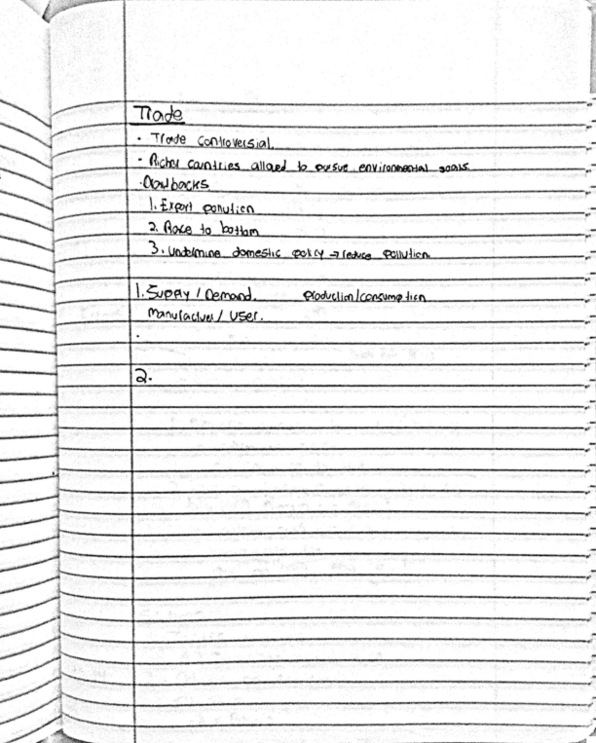 Trade
· Trade controversial.
· Richer countries allowed to pursue environmental goals
· Drawbacks
1. Export pollution
2. Race to bottom
3. Undermine domestic policy → reduce pollution
1. Supply / Demand. production/consumption
manufacturer / user.
·
2.